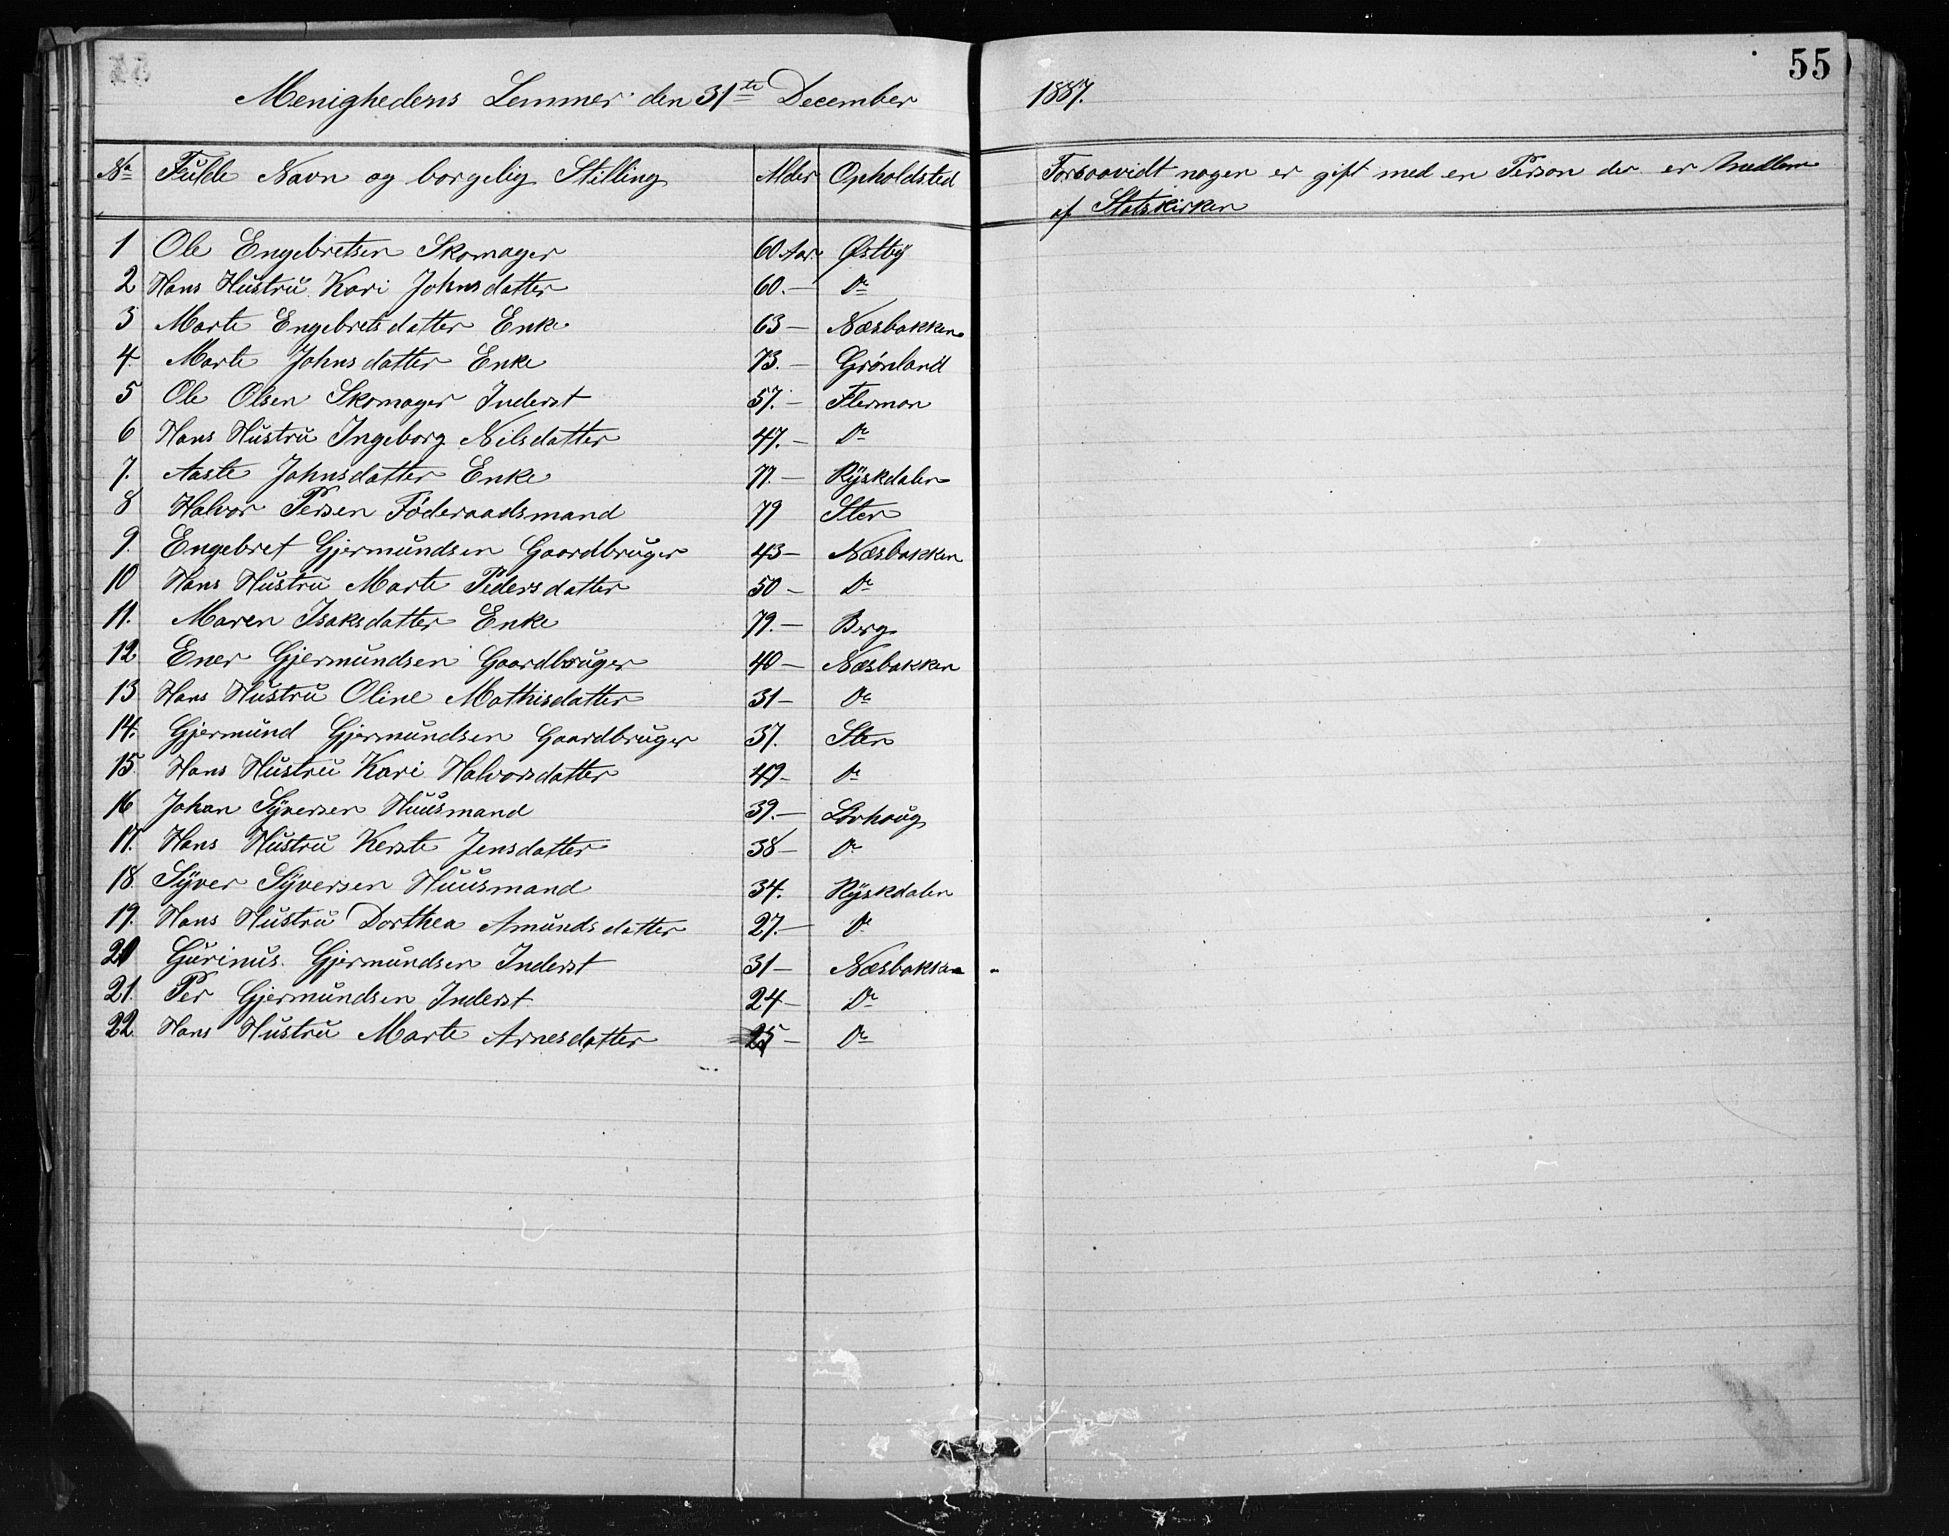 55
Menighedens Lemmer den 31te December 1887.
No Fulde Navn og borgelig Stilling Alder Opholdsted Forsaavidt nogen er gift med en Person der er Medlem
af Statskirken
1 Ole Engebretsen Skomager 60 Aar Østby
2 Hans Hustru Kari Johnsdatter 60.— Do
3 Marte Engebretsdatter Enke 63— Næsbakken
4. Marte Johnsdatter Enke 73.— Grønland
5 Ole Olsen Skomager Inderst 57.— Flermon
6 Hans Hustru Ingeborg Nilsdatter 47.— Do
7. Aaste Johnsdatter Enke 77.— Ryskdalen
8 Halvor Persen Føderaadsmand 79 Sten
9. Engebret Gjermundsen Gaardbruger 43— Næsbakken
10 Hans Hustru Marte Pedersdatter 50— Do
11. Maren Isaksdatter Enke 79.— Berg
12 Ener Gjermundsen Gaardbruger 40— Næsbakken
13 Hans Hustru Oline Mathisdatter 31— Do
14. Gjermund Gjermundsen Gaardbruger 37. Sten
15. Hans Hustru Kari Halvorsdatter 49— Do
16 Johan Syversen Huusmand 39.— Lørhoug
17. Hans Hustru Kerste Jensdatter 38— Do
18. Syver Syversen Huusmand 34. Ryskdalen
19. Hans Hustru Dorthea Amundsdatter 27.— Do
20 Gurinus. Gjermundsen Inderst 31— Næsbakken
21. Per Gjermundsen Inderst 24— Do
22 Hans Hustru Marte Arnesdatter 25— Do